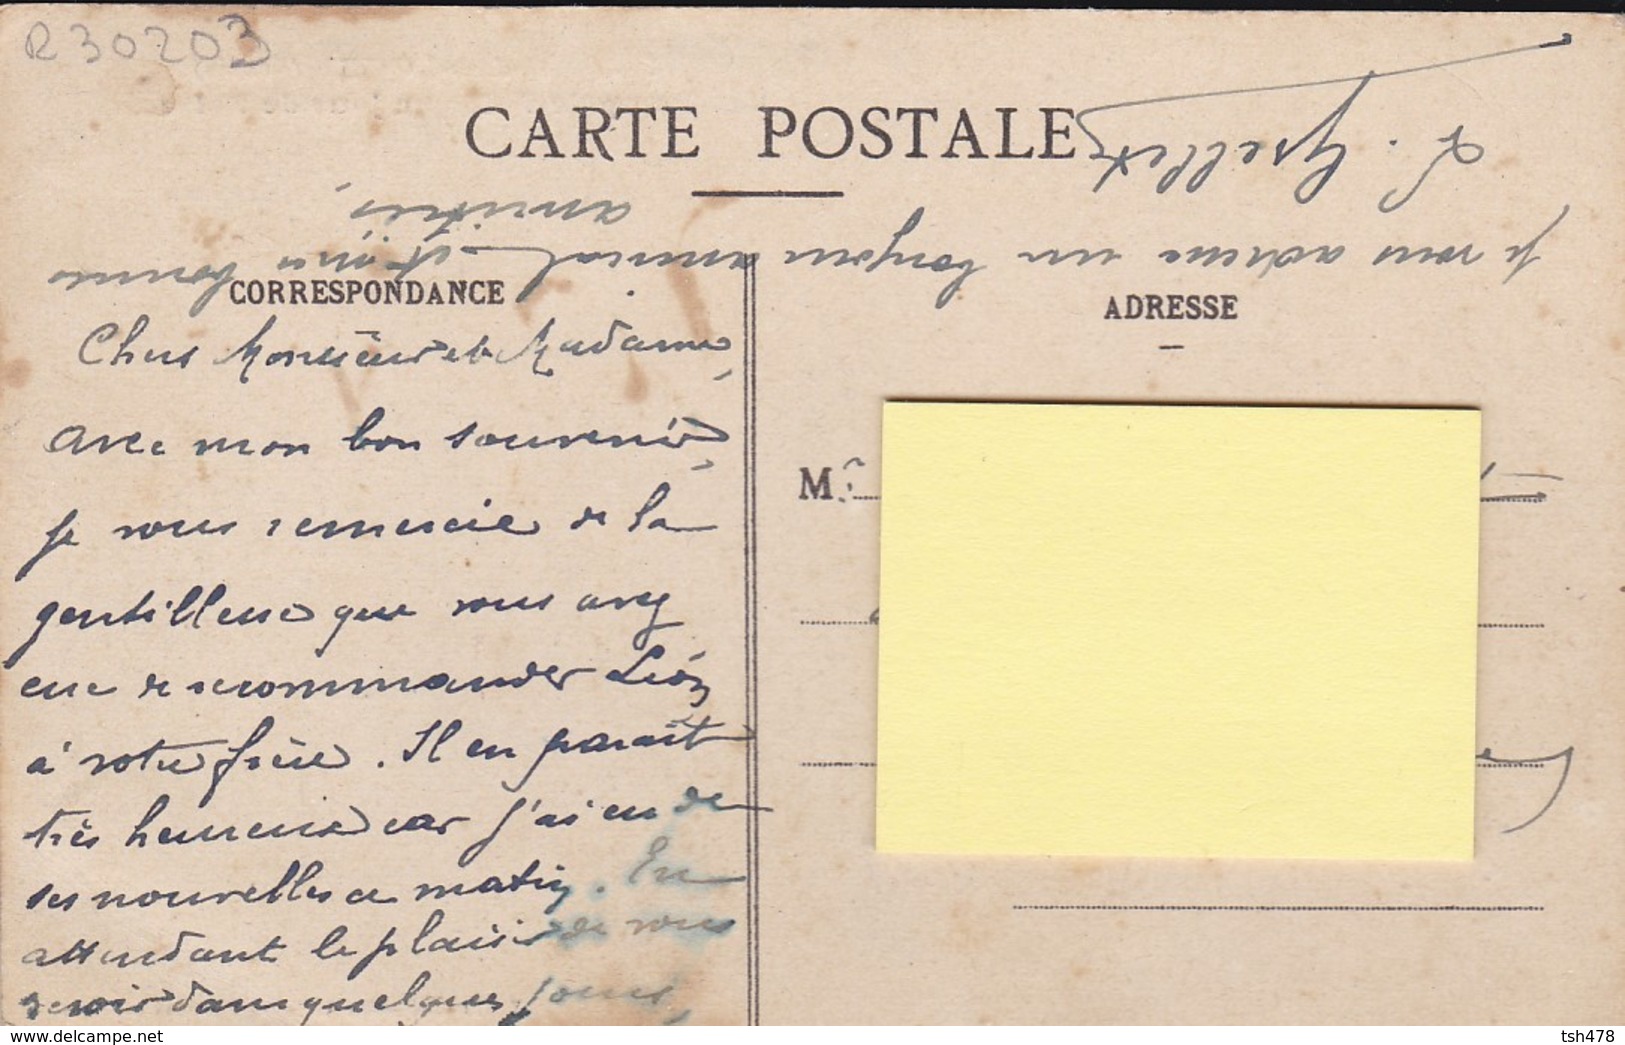 R30203
CARTE POSTALE
CORRESPONDANCE
Chers Monsieur et Madame,
avec mon bon souvenir,
je vous remercie de la
gentillesse que vous avez
eue de recommander Léon
à votre frère. Il en paraît
très heureux car j'ai eu de
ses nouvelles ce matin. En
attendant le plaisir de vous
revoir dans quelques jours,
je vous adresse un bonjour amical et mes bonnes
amitiés
L.
ADRESSE
M
delcampe.net
tsh478